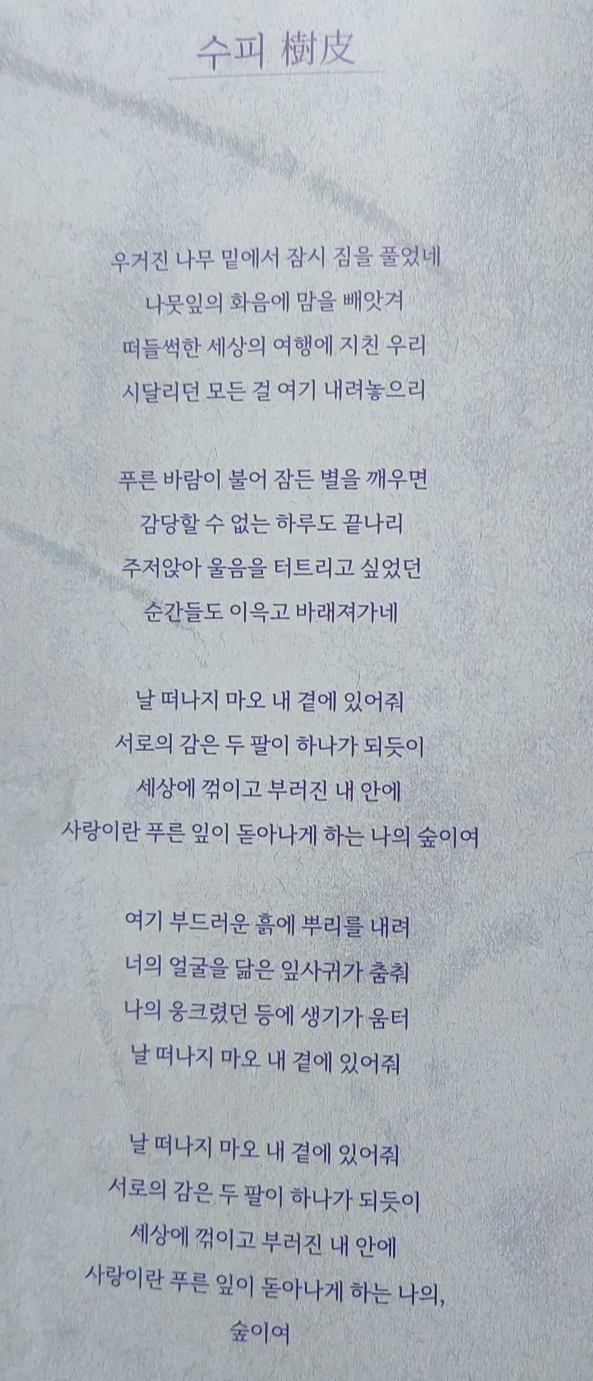 수피 樹皮
우거진 나무 밑에서 잠시 짐을 풀었네
나뭇잎의 화음에 맘을 빼앗겨
떠들썩한 세상의 여행에 지친 우리
시달리던 모든 걸 여기 내려놓으리
푸른 바람이 불어 잠든 별을 깨우면
감당할 수 없는 하루도 끝나리
주저앉아 울음을 터트리고 싶었던
순간들도 이윽고 바래져가네
날 떠나지 마오 내 곁에 있어줘
서로의 감은 두 팔이 하나가 되듯이
세상에 꺾이고 부러진 내 안에
사랑이란 푸른 잎이 돋아나게 하는 나의 숲이여
여기 부드러운 흙에 뿌리를 내려
너의 얼굴을 닮은 잎사귀가 춤춰
나의 웅크렸던 등에 생기가 움터
날 떠나지 마오 내 곁에 있어줘
날 떠나지 마오 내 곁에 있어줘
서로의 감은 두 팔이 하나가 되듯이
세상에 꺾이고 부러진 내 안에
사랑이란 푸른 잎이 돋아나게 하는 나의,
숲이여